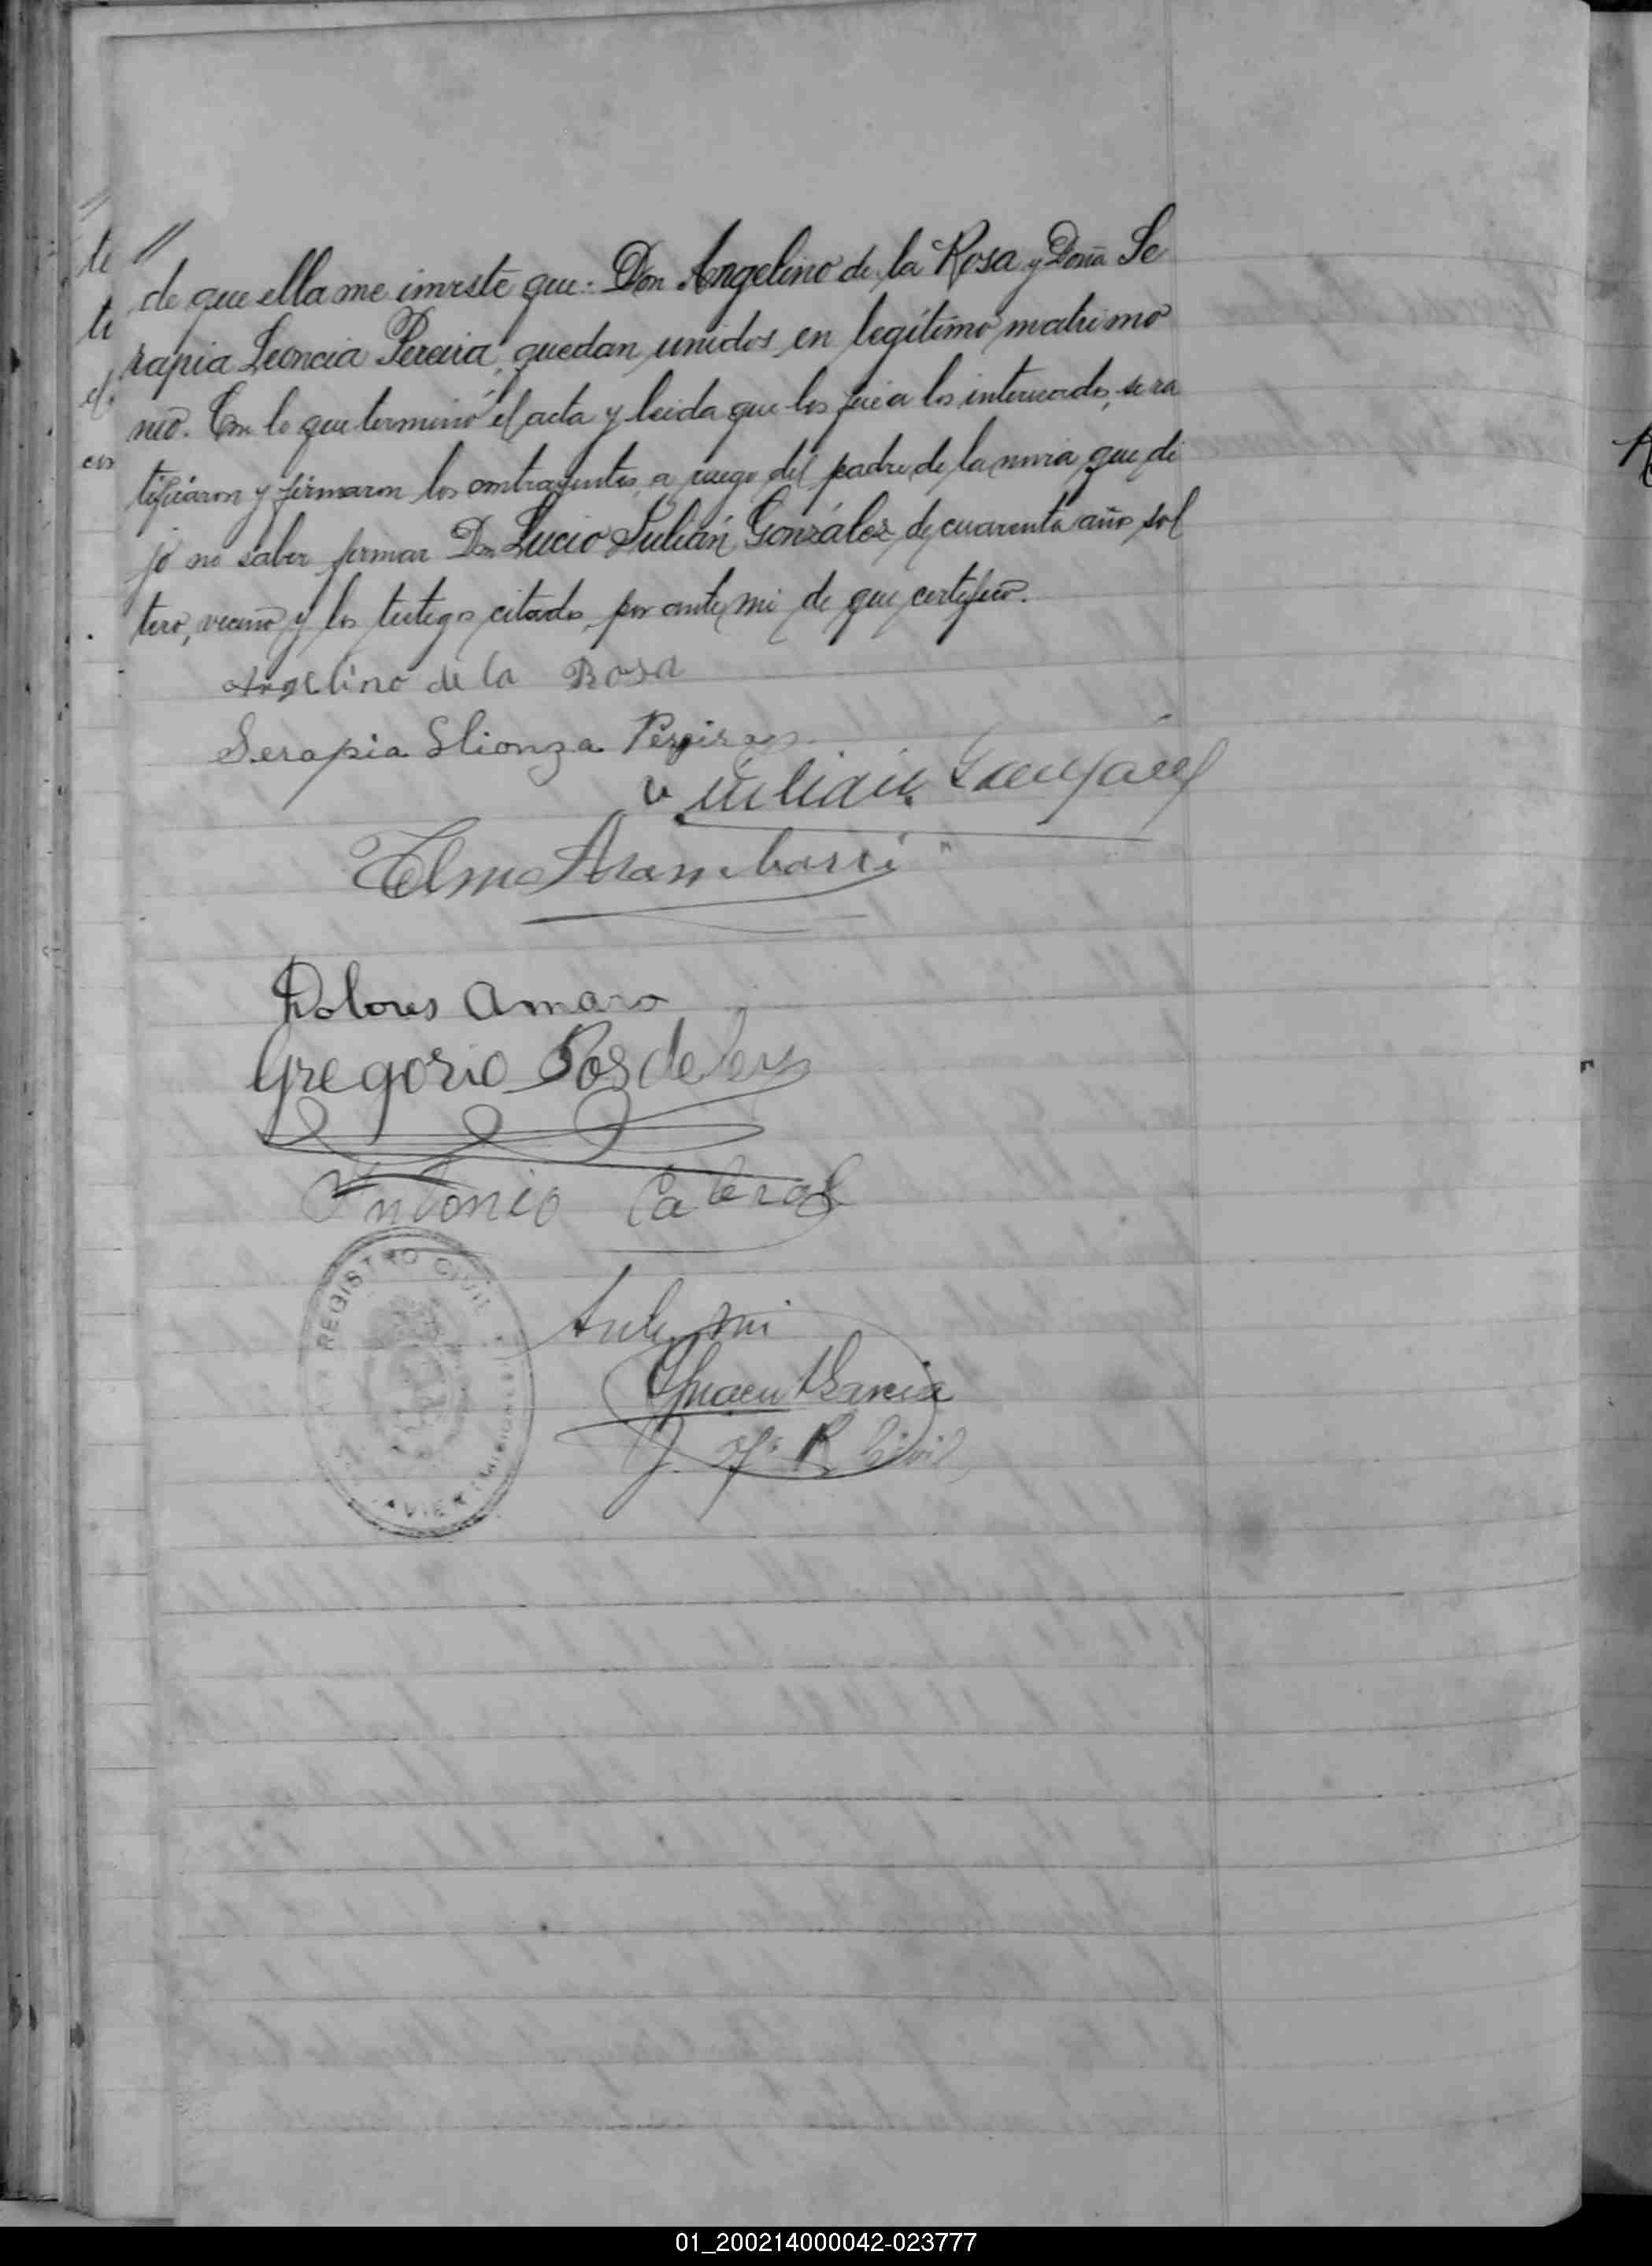 //
de que ella me inviste que: Don Angelino de la Rosa y Doña Se
rapia Leoncia Pereira, quedan unidos en legítimo matrimo
nio. Con lo que terminó el acta y leida que les fué a los interesados, se ra
tificaron y firmaron los contrayentes, a ruego del padre de la novia que di
jo no saber firmar Don Lucio Julián González, de cuarenta años, sol
tero, vecino y los testigos citados, por ante mi de que certifico.
Angelino de la Rosa
Serapia Pereira
Julian
Elmo Arambarri
Dolores Amaro
Gregorio
Antonio Cabral
Ante mi
Garcia
J. Of. R. Civil
REGISTRO CIVIL
te
te
el
en
01_200214000042-023777